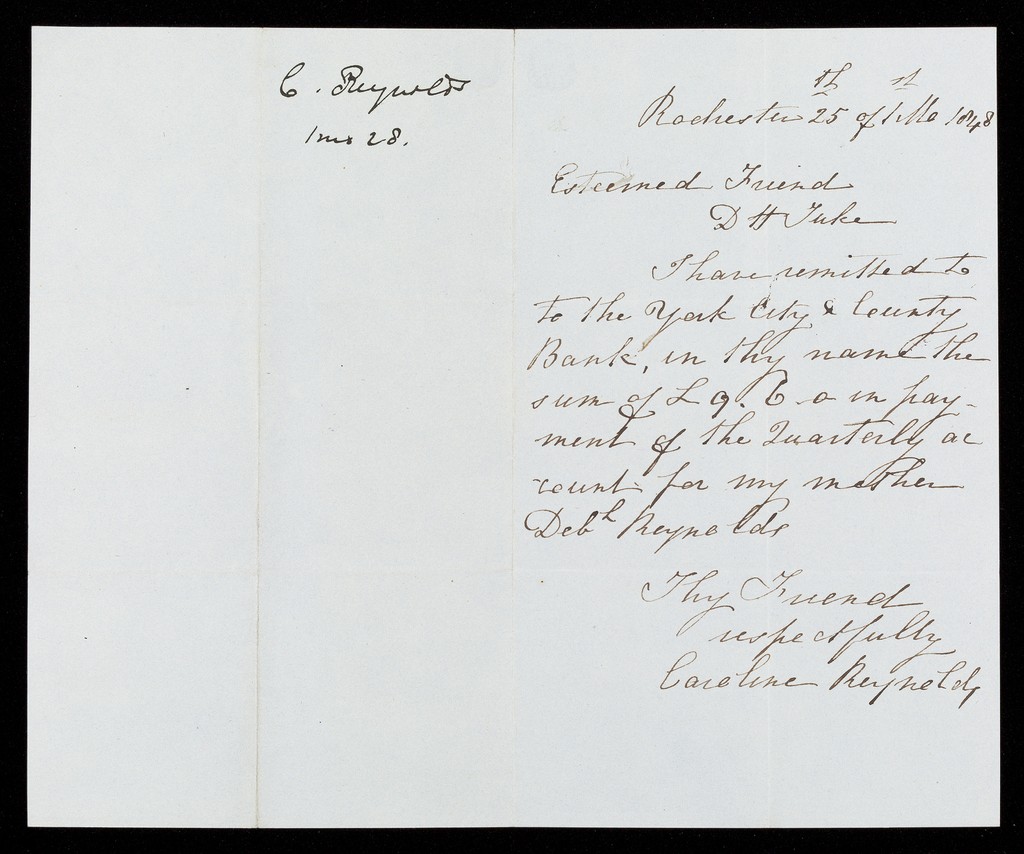 C. Reynolds
1 mo 28.
Rochester 25th of 1st Mo 1848
Esteemed Friend
D H Tuke
I have remitted to
to the York City & County
Bank, in thy name the
sum of £ 9. 6 - 0 in pay-
ment of the Quarterly ac
-count for my mother
Debh Reynolds
Thy Friend
respectfully
Caroline Reynolds